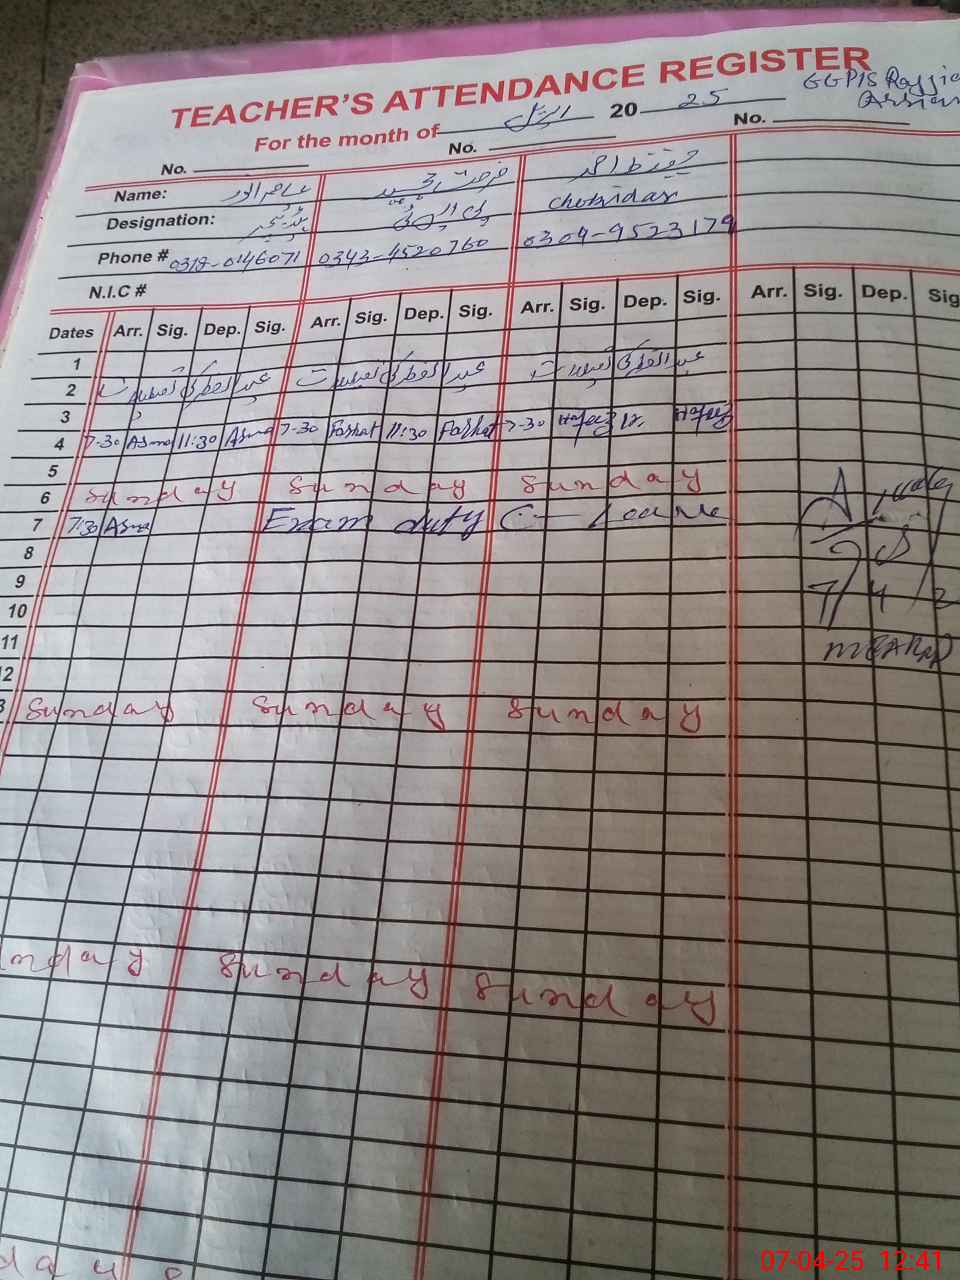 TEACHER'S ATTENDANCE REGISTER
GGPIS
For the month of اپریل 20 25
No. No. No.
Name:
Designation: chokidar
Phone # 0318-0146071 0343-4520760 0304-9523179
N.I.C #
Dates Arr. Sig. Dep. Sig. Arr. Sig. Dep. Sig. Arr. Sig. Dep. Sig. Arr. Sig. Dep. Sig
1
2 عیدالفطر کی تعطیلات عیدالفطر کی تعطیلات عیدالفطر کی تعطیلات
3
4 7-30 Asma 11:30 Asma 7-30 Farhat 11:30 Farhat 7-30 Hafeez 12. Hafeez
5
6 Sunday Sunday Sunday
7 7:30 Asma Exam duty C- Leave
8
9 7/4/2
10
11 MEA
12
3 Sunday Sunday Sunday
nday Sunday Sunday
day S
07-04-25 12:41